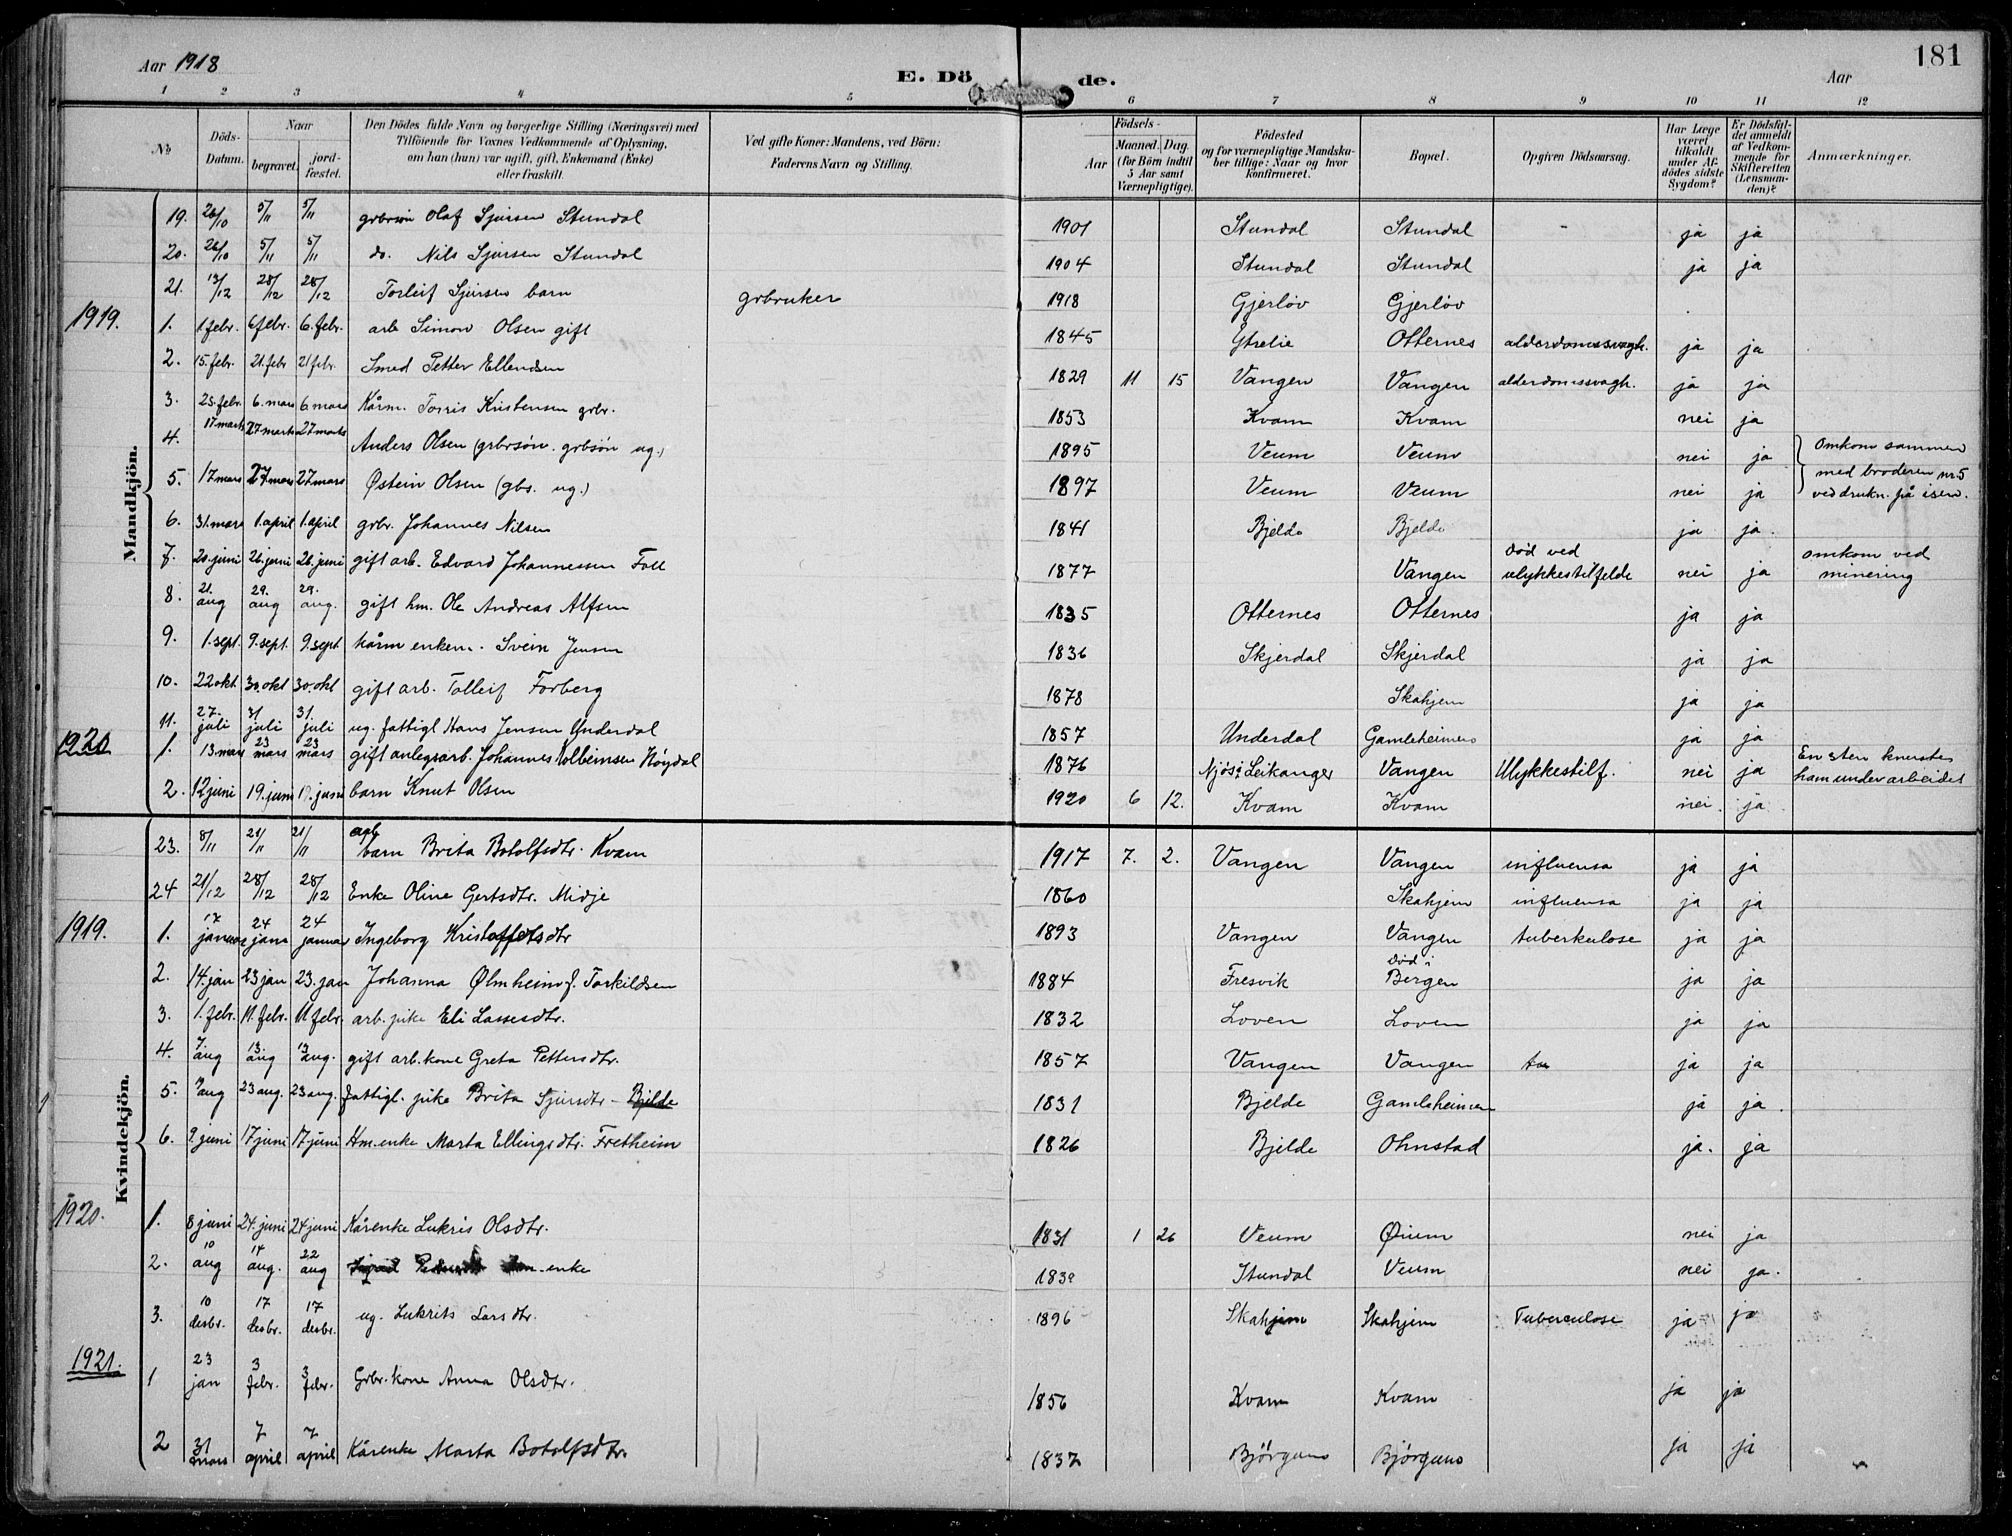 181
Aar 1918
E. Dö de.
Aar
1 2 3 4 5 6 7 8 9 10 11 12
No
Döds-Datum.
Naar
begravet.
jord-fæstet.
Den Dödes fulde Navn og borgerlige Stilling (Næringsvei) med
Tilföiende for Voxnes Vedkommende af Oplysning,
om han (hun) var ugift, gift, Enkemand (Enke)
eller fraskilt.
Ved gifte Koner: Mandens, ved Börn:
Faderens Navn og Stilling.
Födsels-
Aar
Maaned. Dag.
(for Börn indtil
5 Aar samt
Værnepligtige).
Födested
og for værnepligtige Mandska-
ber tillige: Naar og hvor
konfirmeret.
Bopæl.
Opgiven Dödsaarsag.
Har Læge
været
tilkaldt
under Af-
dödes sidste
Sygdom?
Er Dödsfal-
det anmeldt
af Vedkom-
mende for
Skifteretten
(Lensman-
den)?
Anmærkninger.
Mandkjön.
19. 26/10 5/11 5/11 grbrsön Olaf Sjursen Stundal 1901 Stundal Stundal - ja ja
20. 26/10 5/11 5/11 do. Nils Sjursen Stundal 1904 Stundal Stundal ja ja
21. 13/12 28/12 28/12 Torleif Sjursen barn grbruker 1918 Gjerløv Gjerløv
1919. 1. 1. febr. 6 febr. 6. febr. arb Simon Olsen gift 1845 Ytrelie Otternes alderdomssvagh. ja ja
2. 15. febr. 21. febr 21 febr. Smed Petter Ellendsen 1829 11 15 Vangen Vangen alderdomssvagh. ja ja
3. 25. febr. 6. mars 6. mars Kårm. Torris Kristensen grbr. 1853 Kvam Kvam nei ja
4. 17 marts 27 marts 27 marts Anders Olsen (grbrsön. grbsön ug.) 1895 Veum Veum nei ja omkom sammen
5. 17 mars 27 mars 27 mars Østein Olsen (gbs. ug.) 1897 Veum Veum nei ja med broderen nr 5
ved drukn. på isen.
6. 31. mars 1. april 1. april grbr. Johannes Nilsen 1841 Bjelde Bjelde ja ja.
7. 20. juni 26. juni 26. juni gift arb. Edvard Johannessen Foll 1877 Vangen død ved ulykkestilfelde nei ja omkom ved minering
8. 21. aug 29. aug 29. aug. gift hm. Ole Andreas Alfsen 1835 Otternes Otternes ja ja
9. 1. sept. 9. sept. 9. sept kårm enkem. Svein Jensen 1836 Skjerdal Skjerdal ja ja
10. 22 okt. 30. okt 30. okt gift arb. Tolleif Forberg 1878 Skahjem ja ja
11. 27. juli 31 juli 31. juli ug. fattigl Hans Jensen Underdal 1857 Underdal Gamleheimen ja ja
1920 1. 13. mars 23 mars 23 mars gift anlegsarb. Johannes Kolbeinsen Høydal 1876 Njøs i Leikanger Vangen Ulykkestilf. nei ja En sten knuste
ham under arbeidet
2. 12 juni 19. juni juni barn Knut Olsen 1920 6 12. Kvam Kvam nei. ja
Kvindekjön.
23. 8/11 21/11 21/11 arb barn Brita Botolfsdtr. Kvam 1917 7. 2. Vangen Vangen influensa ja ja
24 21/12 28/12 28/12 Enke Oline Gertsdtr. Midje 1860 Skahjem influensa ja ja
1919. 1. 17 januar 24 jan 24 januar Ingeborg Kristoffersdtr 1893 Vangen Vangen tuberkulose ja ja
2. 14. jan 23 jan 23. jan Johanna Ølmheim f. Torkildsen 1884 Fresvik død i Bergen ja ja
3. 1. febr. 11. febr. 11 febr. arb. pike Eli Lassesdtr. 1832 Loven Loven ja ja
4. 7. aug 13. aug 13 aug. gift arb. kone Greta Pettersdtr. 1857 Vangen Vangen ja ja
5. aug 23 aug. 23 aug. fattigl. pike Brita Sjursdtr - Bjelde 1831 Bjelde Gamleheimen ja ja.
6. 9 juni 17 juni 17 juni Hm. enke Marta Ellingsdtr. Fretheim 1826 Bjelde Ohnstad ja. ja
1920. 1. 8 juni 24. juni 24 juni Kårenke Lukris Olsdtr. 1831 1 26 Veum Øium nei ja
2. 10 aug 14 aug. 22 aug enke 1839 Stundal Veum nei ja.
3. 10 desbr. 17 desbr. 17 desbr. ug. Lukrits Larsdtr. 1896 Skahjem Skahjem Tuberculose ja ja
1921. 1 23 jan 3 febr. 3 febr. Grbr. kone Anna Olsdtr. 1856 Kvam Kvam ja ja
2 31 mars 7 april 7 april Kårenke Marta Botolfsdtr. 1837 Bjørgum Bjørgum ja ja